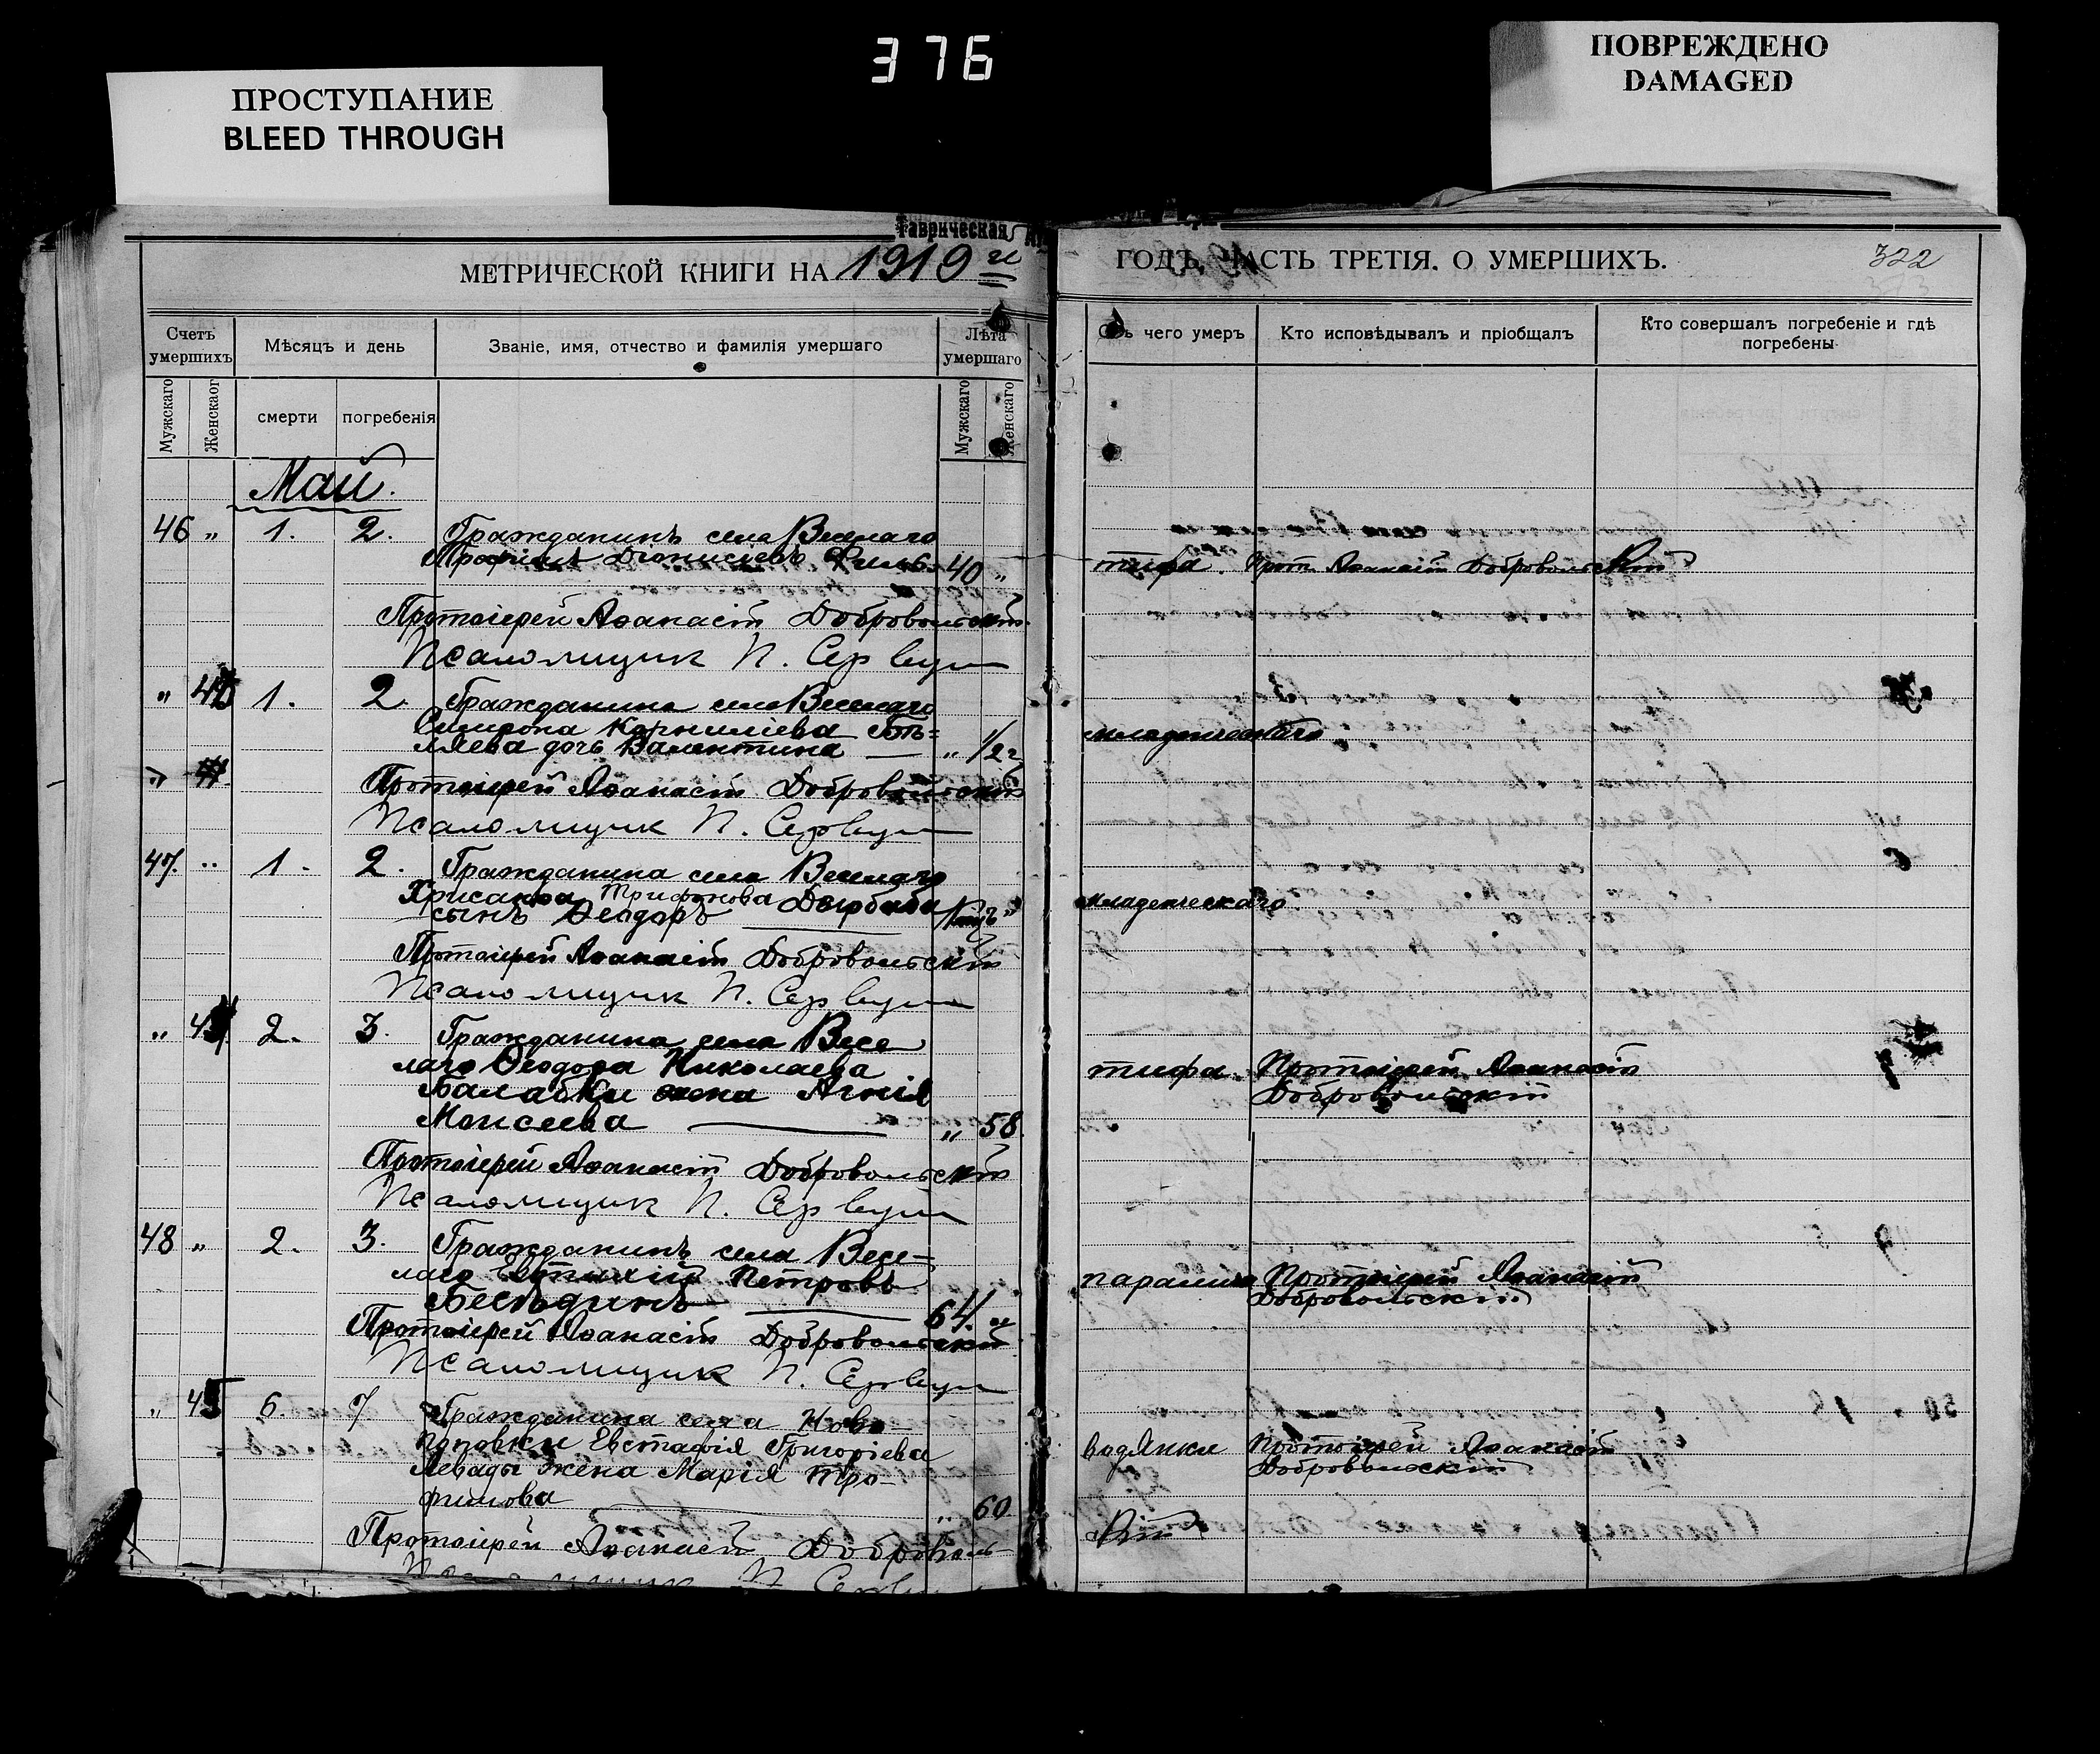 376
ПРОСТУПАНИЕ
BLEED THROUGH
ПОВРЕЖДЕНО
DAMAGED
Таврическая
МЕТРИЧЕСКОЙ КНИГИ НА 1919 й
ГОДЪ, ЧАСТЬ ТРЕТІЯ. О УМЕРШИХЪ.
322
Счетъ умершихъ
Мѣсяцъ и день
Званіе, имя, отчество и фамилія умершаго
Лѣта умершаго
чего умеръ
Кто исповѣдывалъ и пріобщалъ
Кто совершалъ погребеніе и гдѣ погребены
Мужскаго
Женскаог
смерти
погребенія
Мужскаго
Женскаго
Май.
46 „ 1. 2. Гражданинъ села Веселаго
Діонисіевъ 40 „ тифа. Прот. Аѳанасій Добровольскій
Протоіерей Аѳанасій Добровольскій
Псаломщик П.
„ 1. 2. Гражданина села Веселаго
Корниліева Бѣ=
ляева дочь Валентина „ 1/2 г младенческаго
Протоіерей Аѳанасій Добровольскій
Псаломщик П.
47. „ 1. 2. Гражданина села Веселаго
Хрисанфа Трифонова
сынъ Ѳеодоръ „ младенческаго
Протоіерей Аѳанасій Добровольскій
Псаломщик П.
„ 2. 3. Гражданина села Весе
лаго Ѳеодора Николаева
Балабки жена Агнія
Моисеева „ 58 тифа. Протоіерей Аѳанасій
Добровольскій
Протоіерей Аѳанасій Добровольскій
Псаломщик П.
48 „ 2. 3. Гражданинъ села Весе-
лаго Евтихій Петровъ
Бесѣдинъ 64. „ паралича Протоіерей Аѳанасій
Добровольскій
Протоіерей Аѳанасій Добровольскій
Псаломщик П.
„ 6. 7 Гражданина села Ново-
поповки Евстафія Григоріева
Левады жена Марія Тро-
фимова „ 60 водянки Протоіерей Аѳанасій
Добровольскій
Протоіерей Аѳанасій Доброволь
скій